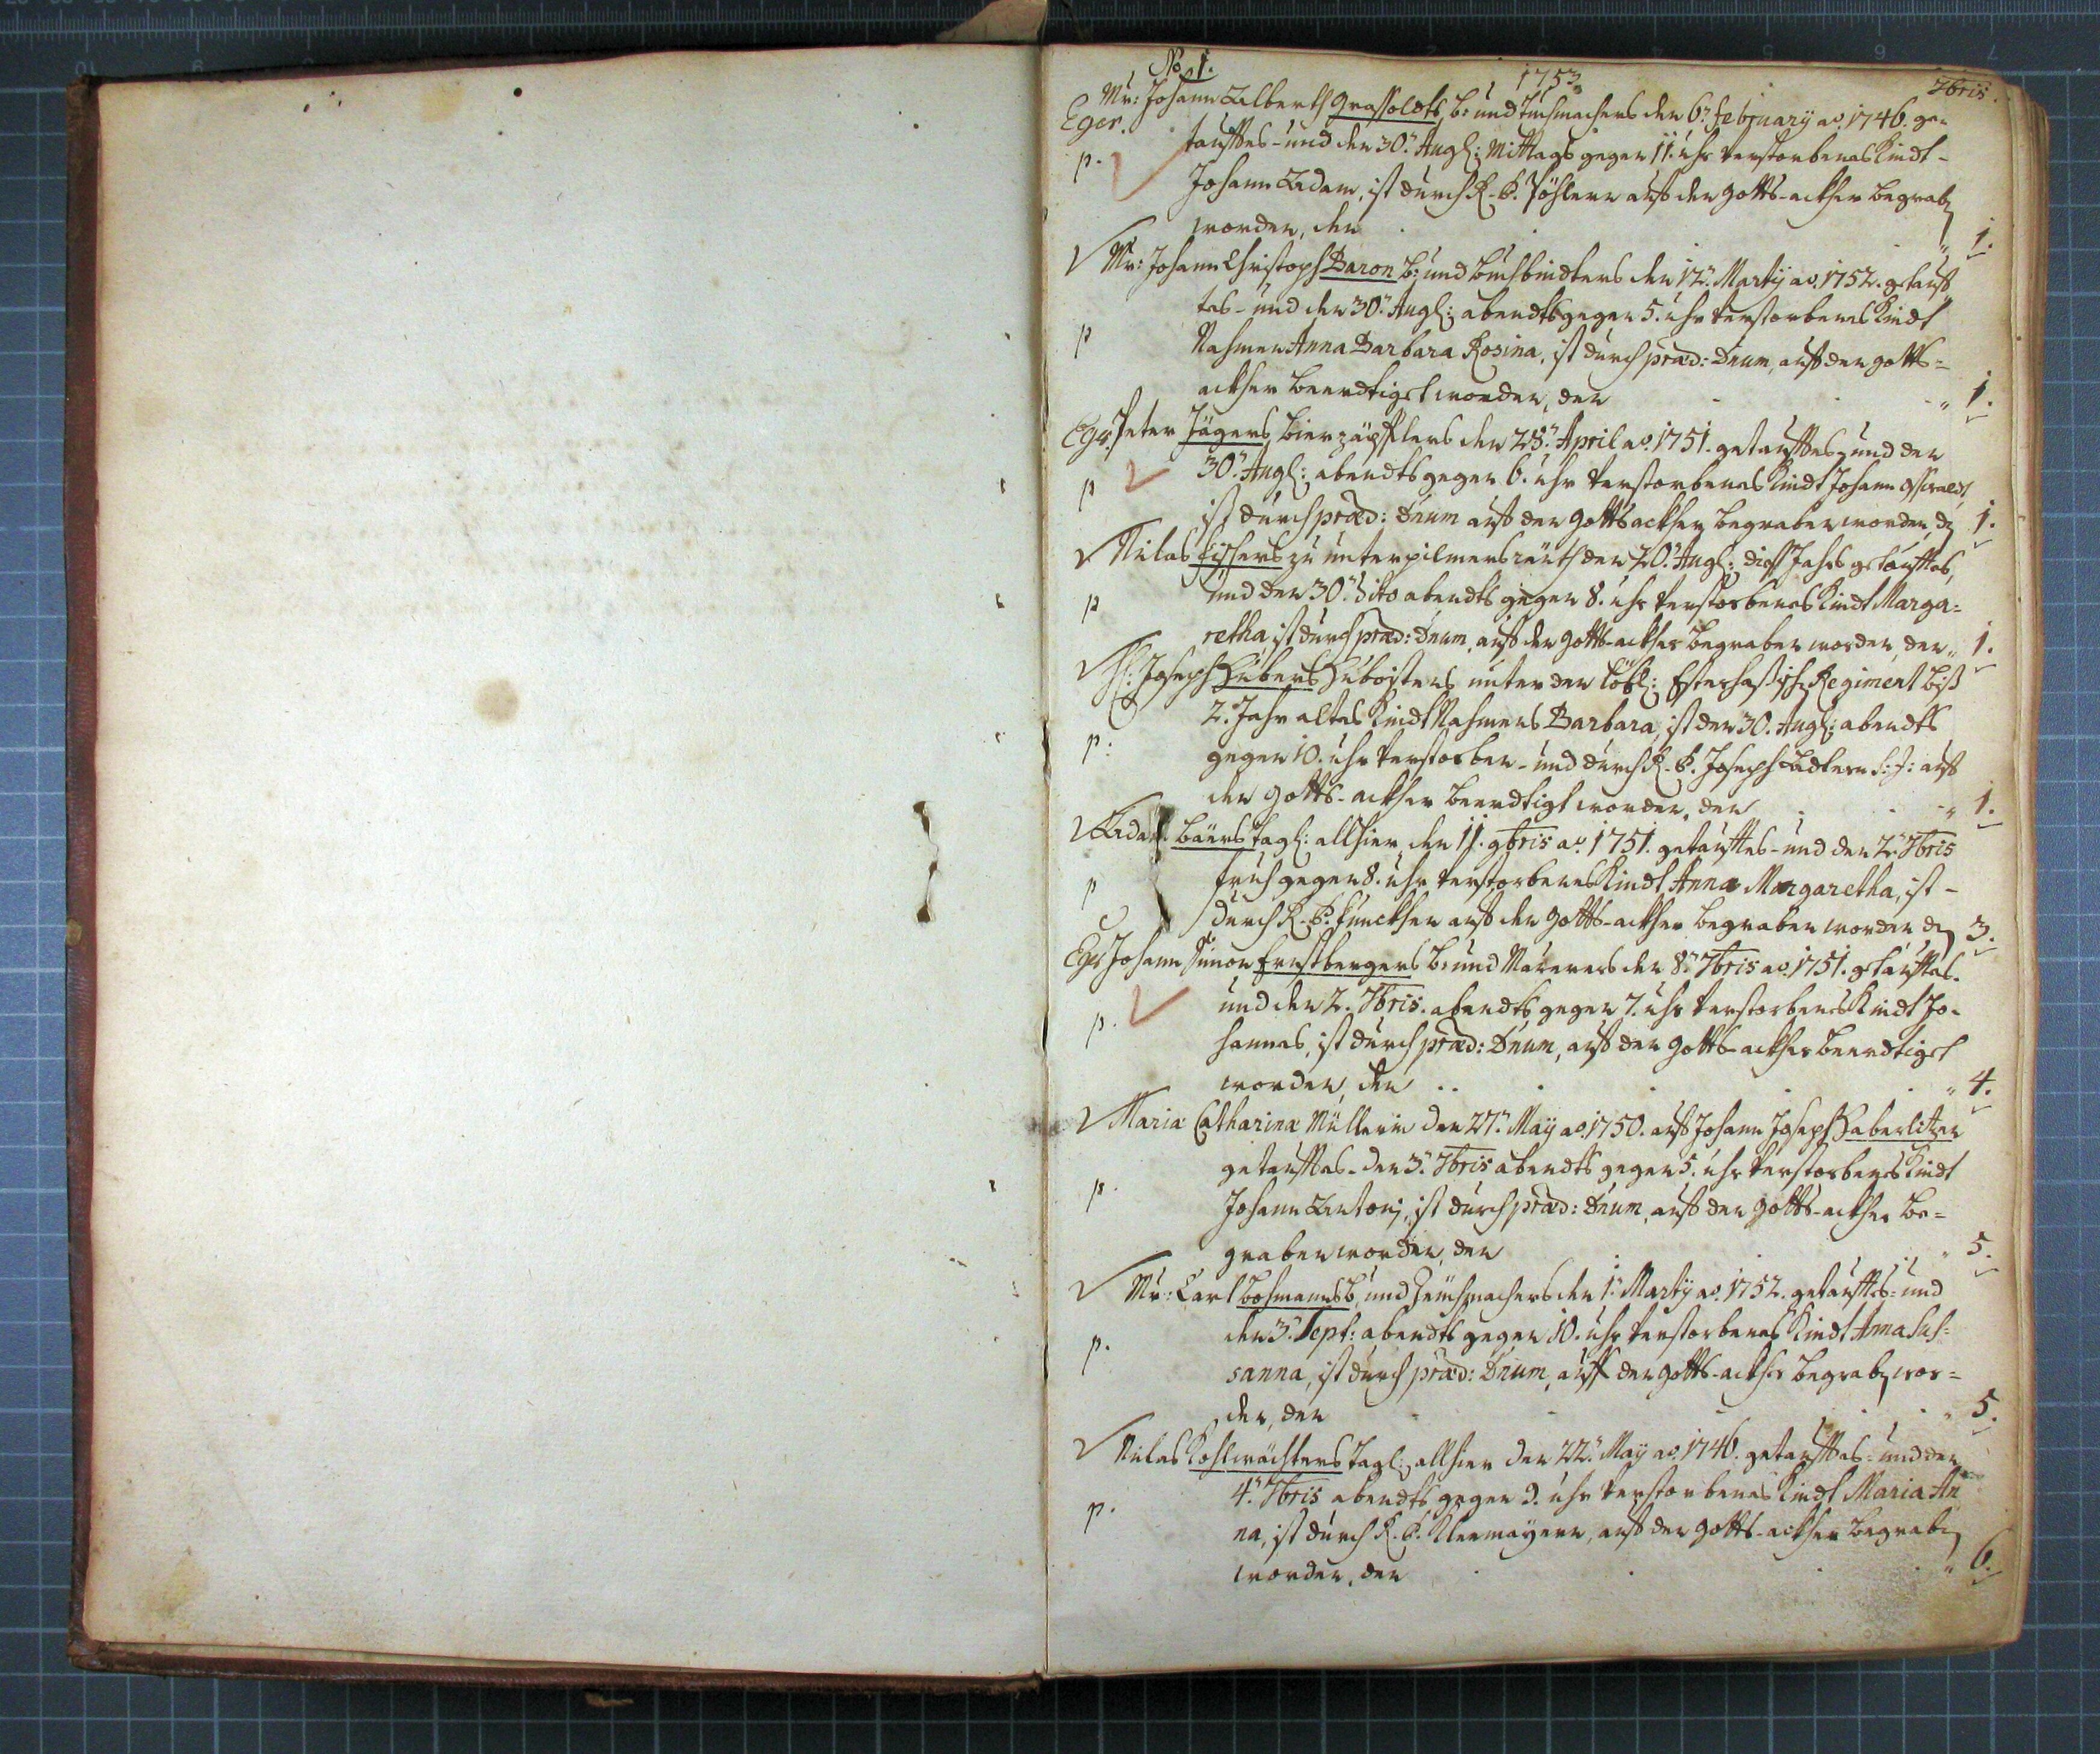 No 1.
1753.
7bris.
Mr: Johann Adalberth Grassoldts, b: und Tuchmachers den 6.ten February ao. 1746. ge-
Eger.
tauftes- und den 30.ten Aug: Mittags gegen 11. uhr verstorbenes Kindt-
p.
Johann Adam, ist durch R. P. Pöhlern auf den Gotts-ackher begrab
worden, den " 1.
Mr: Johann Christoph Baron b: und Buchbindters den 12.ten Marty ao. 1752. getauf
tes- und den 30.ten Aug: abendts gegen 5. uhr verstorbenes Kindt
p
Nahmen Anna Barbara Rosina, ist durch præd: Dnum, auf den Gotts=
ackher beerdtiget worden, den " 1.
Egr. Peter Jägers, bierzäpflers den 28.ten April ao. 1751. getauftes und den
30.ten Aug: abendts gegen 6. uhr verstorbenes Kindt Johann Osswaldt,
p
ist durch præd: Dnum auf den Gottsackher begraben worden, d 1.
Niclas Fischers zu unterpilmersräuth den 20.ten Aug: diss Jahrs getauftes,
und den 30.ten dito abendts gegen 8. uhr verstorbenes Kindt Marga=
p
retha, ist durch præd: Dnum, auf den Gotts-ackher begraben worden, den " 1.
H: Joseph Hubers Huboistens unter den löbl: Esterhasisch Regiment biß
2. Jahr altes Kindt Nahmens Barbara, ist den 30. Aug: abendts
p:
gegen 10. uhr verstorben- und durch R. P. Joseph Adlern S: J: auf
den Gotts-ackher beerdtigt worden, den " 1.
Adam Bäers tagl: allhier, den 11. 9bris ao. 1751. getauftes- und den 2.ten 7bris
p
fruh gegen 8. uhr verstorbenes Kindt Anna Margaretha, ist-
durch R. P. Funckhen auf den Gotts-ackher begraben worden d 3.
Egr Johann Simon Ernstbergers b: und Maurers den 8.ten 7bris ao. 1751. getauftes.
und den 2. 7bris. abendts gegen 7. uhr verstorbenes Kindt Jo-
p.
hannes, ist durch præd: Dnum, auf den Gotts-ackher beerdtiget
worden, den " 4.
Maria Catharina Müllerin den 27.ten May ao. 1750. auf Johann Joseph Haberlitzer
getauftes- den 3.ten 7bris abendts gegen 5. uhr verstorbenes Kindt
p.
Johann Antonj, ist durch præd: Dnum, auf den Gotts-ackher be=
graben worden, den " 5.
Mr: Carl Bohmanns b, und Zeuchmachers den 1.ten Marty ao. 1752. getauftes= und
den 3.ten Sept: abendts gegen 10. uhr verstorbenes Kindt Anna Sus=
p.
sanna, ist durch præd: Dnum, auf den Gotts-ackher begrab wor=
den, den " 5.
Niclas Kohlwächters tagl: allhier den 22.ten May ao. 1746. getauftes= und den
4.ten 7bris abendts gegen 9. uhr verstorbenes Kindt Maria An
p.
na, ist durch R. P. Clermayern, auf den Gotts-ackher begrab
worden, den " 6.